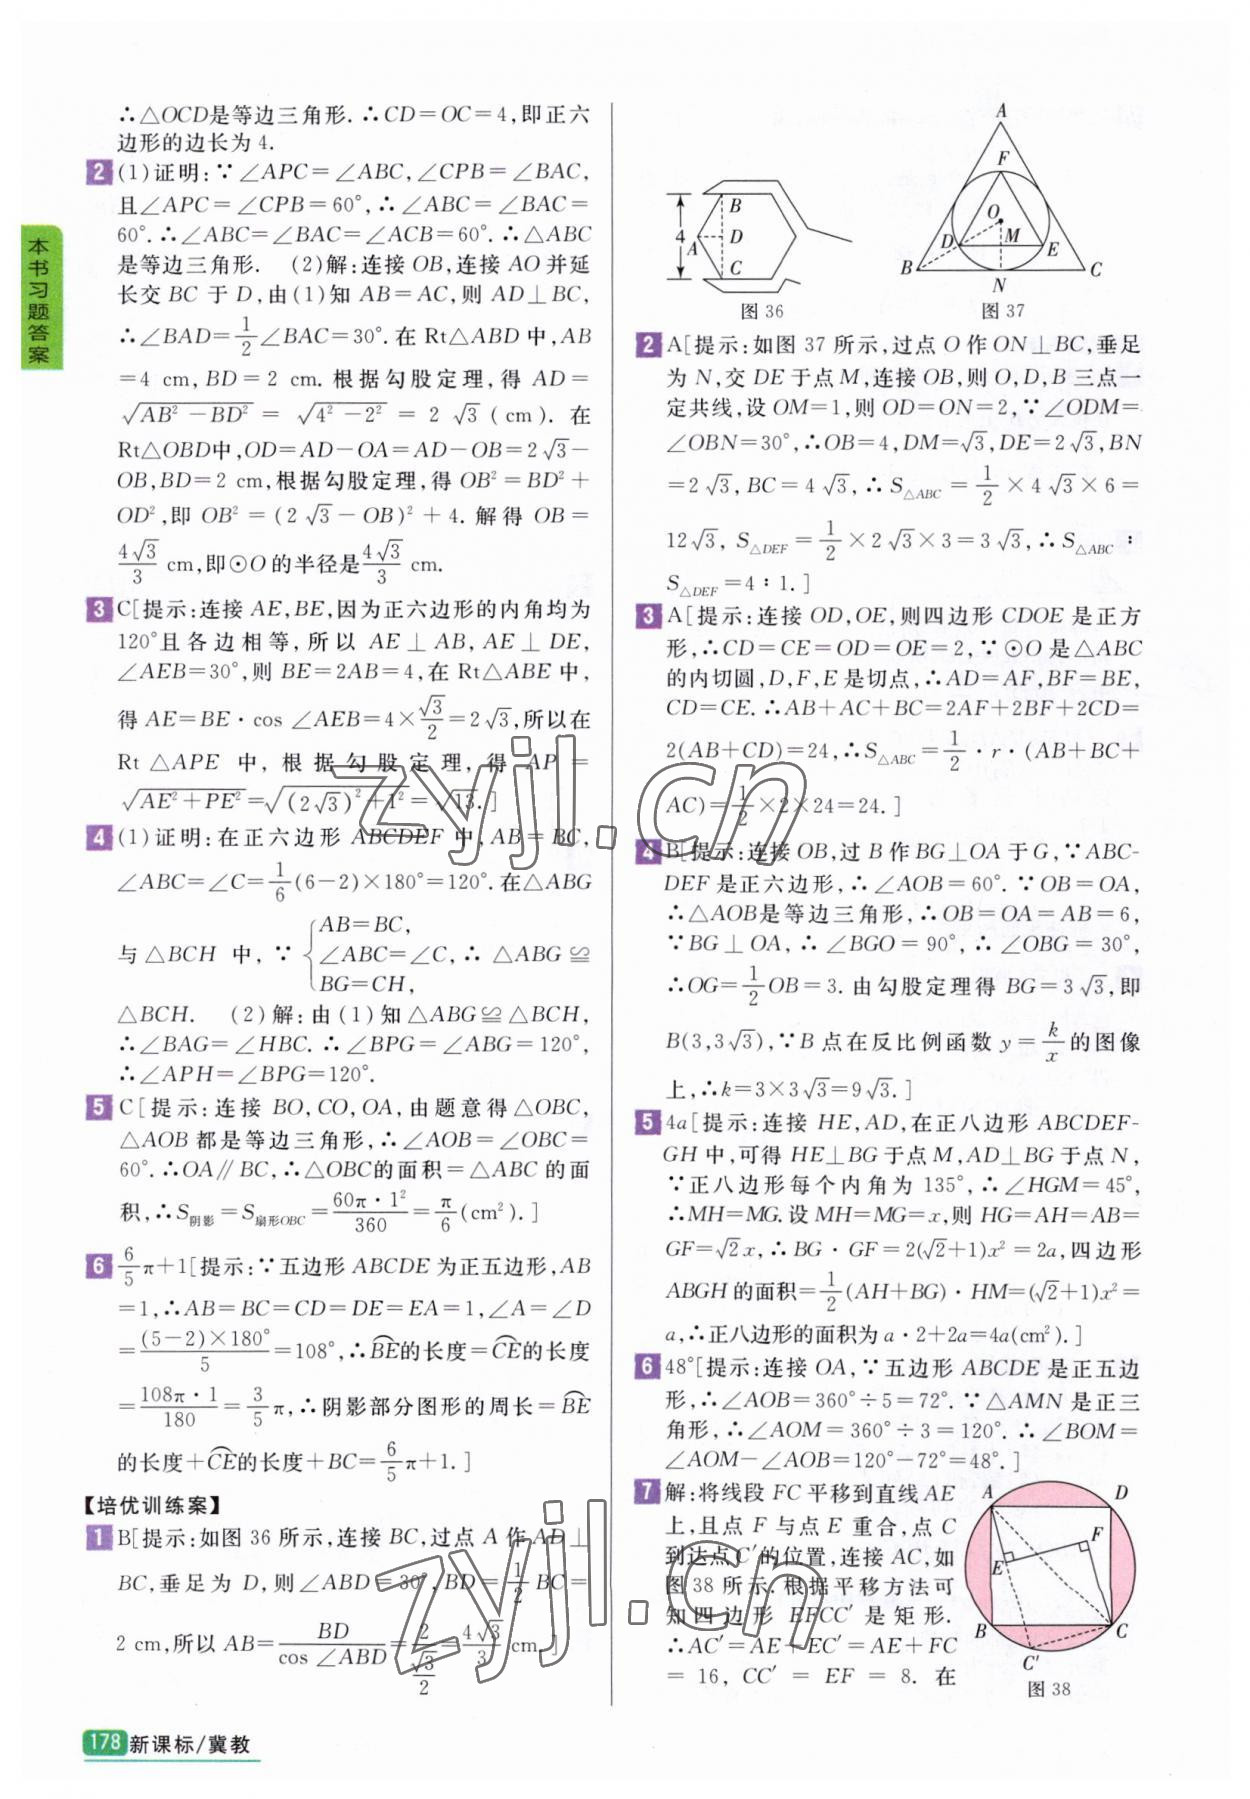 本书习题答案
∴△OCD是等边三角形.∴CD=OC=4,即正六
边形的边长为4.
2 (1)证明:∵∠APC=∠ABC,∠CPB=∠BAC,
且∠APC=∠CPB=60°,∴∠ABC=∠BAC=
60°.∴∠ABC=∠BAC=∠ACB=60°.∴△ABC
是等边三角形. (2)解:连接 OB,连接 AO 并延
长交 BC 于 D,由(1)知 AB=AC,则 AD⊥BC,
∴∠BAD=1/2∠BAC=30°.在 Rt△ABD 中,AB
=4 cm,BD=2 cm.根据勾股定理,得 AD=
√(AB²-BD²) = √(4²-2²) = 2√3(cm). 在
Rt△OBD中,OD=AD-OA=AD-OB=2√3-
OB,BD=2 cm,根据勾股定理,得 OB²=BD²+
OD²,即 OB²=(2√3-OB)²+4.解得 OB=
4√3/3 cm,即⊙O的半径是4√3/3 cm.
3 C[提示:连接 AE,BE,因为正六边形的内角均为
120°且各边相等,所以 AE⊥AB,AE⊥DE,
∠AEB=30°,则 BE=2AB=4,在 Rt△ABE 中,
得 AE=BE·cos∠AEB=4×√3/2=2√3,所以在
Rt△APE 中,根据勾股定理,得 AP=
√(AE²+PE²)=√((2√3)²+1²)=√13.]
4 (1)证明:在正六边形 ABCDEF 中,AB=BC,
∠ABC=∠C=1/6(6-2)×180°=120°.在△ABG
与△BCH 中,∵ { AB=BC,
∠ABC=∠C,∴△ABG≌
BG=CH,
△BCH. (2)解:由(1)知△ABG≌△BCH,
∴∠BAG=∠HBC.∴∠BPG=∠ABG=120°,
∴∠APH=∠BPG=120°.
5 C[提示:连接 BO,CO,OA,由题意得△OBC,
△AOB都是等边三角形,∴∠AOB=∠OBC=
60°.∴OA∥BC,∴△OBC的面积=△ABC的面
积,∴S阴影=S扇形OBC=60π·1²/360=π/6(cm²).]
6 6/5π+1[提示:∵五边形 ABCDE 为正五边形,AB
=1,∴AB=BC=CD=DE=EA=1,∠A=∠D
=(5-2)×180°/5=108°,∴B͡E的长度=C͡E的长度
=108π·1/180=3/5π,∴阴影部分图形的周长=B͡E
的长度+C͡E的长度+BC=6/5π+1.]
【培优训练案】
1 B[提示:如图 36 所示,连接 BC,过点 A 作 AD⊥
BC,垂足为 D,则∠ABD=30°,BD=1/2BC=
2 cm,所以 AB=BD/cos∠ABD=2/(√3/2)=4√3/3 cm.]
178 新课标/冀教
4
A
B
D
C
图 36
A
F
O
D
M
E
B
N
C
图 37
2 A[提示:如图 37 所示,过点 O 作 ON⊥BC,垂足
为 N,交 DE 于点 M,连接 OB,则 O,D,B 三点一
定共线,设 OM=1,则 OD=ON=2,∵∠ODM=
∠OBN=30°,∴OB=4,DM=√3,DE=2√3,BN
=2√3,BC=4√3,∴S△ABC=1/2×4√3×6=
12√3,S△DEF=1/2×2√3×3=3√3,∴S△ABC∶
S△DEF=4∶1.]
3 A[提示:连接 OD,OE,则四边形 CDOE 是正方
形,∴CD=CE=OD=OE=2,∵⊙O 是△ABC
的内切圆,D,F,E是切点,∴AD=AF,BF=BE,
CD=CE.∴AB+AC+BC=2AF+2BF+2CD=
2(AB+CD)=24,∴S△ABC=1/2·r·(AB+BC+
AC)=1/2×2×24=24.]
4 B[提示:连接 OB,过 B 作 BG⊥OA 于 G,∵ABC-
DEF 是正六边形,∴∠AOB=60°.∵OB=OA,
∴△AOB是等边三角形,∴OB=OA=AB=6,
∵BG⊥OA,∴∠BGO=90°,∴∠OBG=30°,
∴OG=1/2OB=3.由勾股定理得 BG=3√3,即
B(3,3√3),∵B 点在反比例函数 y=k/x的图像
上,∴k=3×3√3=9√3.]
5 4a[提示:连接 HE,AD,在正八边形 ABCDEF-
GH 中,可得 HE⊥BG 于点 M,AD⊥BG 于点 N,
∵正八边形每个内角为 135°,∴∠HGM=45°,
∴MH=MG.设 MH=MG=x,则 HG=AH=AB=
GF=√2x,∴BG·GF=2(√2+1)x²=2a,四边形
ABGH 的面积=1/2(AH+BG)·HM=(√2+1)x²=
a,∴正八边形的面积为 a·2+2a=4a(cm²).]
6 48°[提示:连接 OA,∵五边形 ABCDE 是正五边
形,∴∠AOB=360°÷5=72°.∵△AMN 是正三
角形,∴∠AOM=360°÷3=120°.∴∠BOM=
∠AOM-∠AOB=120°-72°=48°.]
7 解:将线段 FC 平移到直线 AE
上,且点 F 与点 E 重合,点 C
到达点C′的位置,连接 AC,如
图 38 所示.根据平移方法可
知四边形 EFCC′是矩形.
∴AC′=AE+EC′=AE+FC
=16,CC′=EF=8.在
A
D
F
E
B
C
C′
图 38
zyjl.cn
zyjl.cn